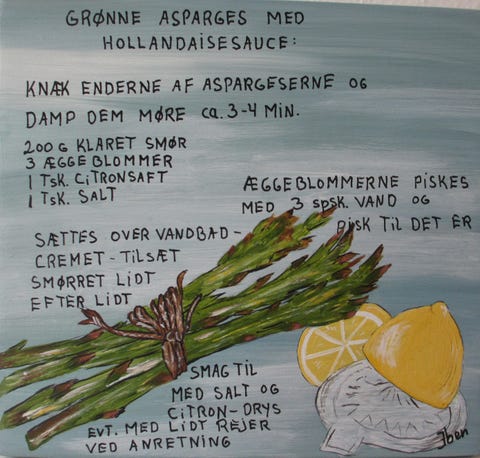 GRØNNE ASPARGES MED
HOLLANDAISESAUCE:
KNÆK ENDERNE AF ASPARGESERNE OG
DAMP DEM MØRE ca. 3-4 MIN.
200 G KLARET SMØR
3 ÆGGEBLOMMER
1 TSK. CITRONSAFT
1 TSK. SALT
ÆGGEBLOMMERNE PISKES
MED 3 SPSK. VAND OG
PISK TIL DET ER
SÆTTES OVER VANDBAD-
CREMET - TILSÆT
SMØRRET LIDT
EFTER LIDT
SMAG TIL
MED SALT OG
CITRON-DRYS
EVT. MED LIDT REJER
VED ANRETNING
Iben